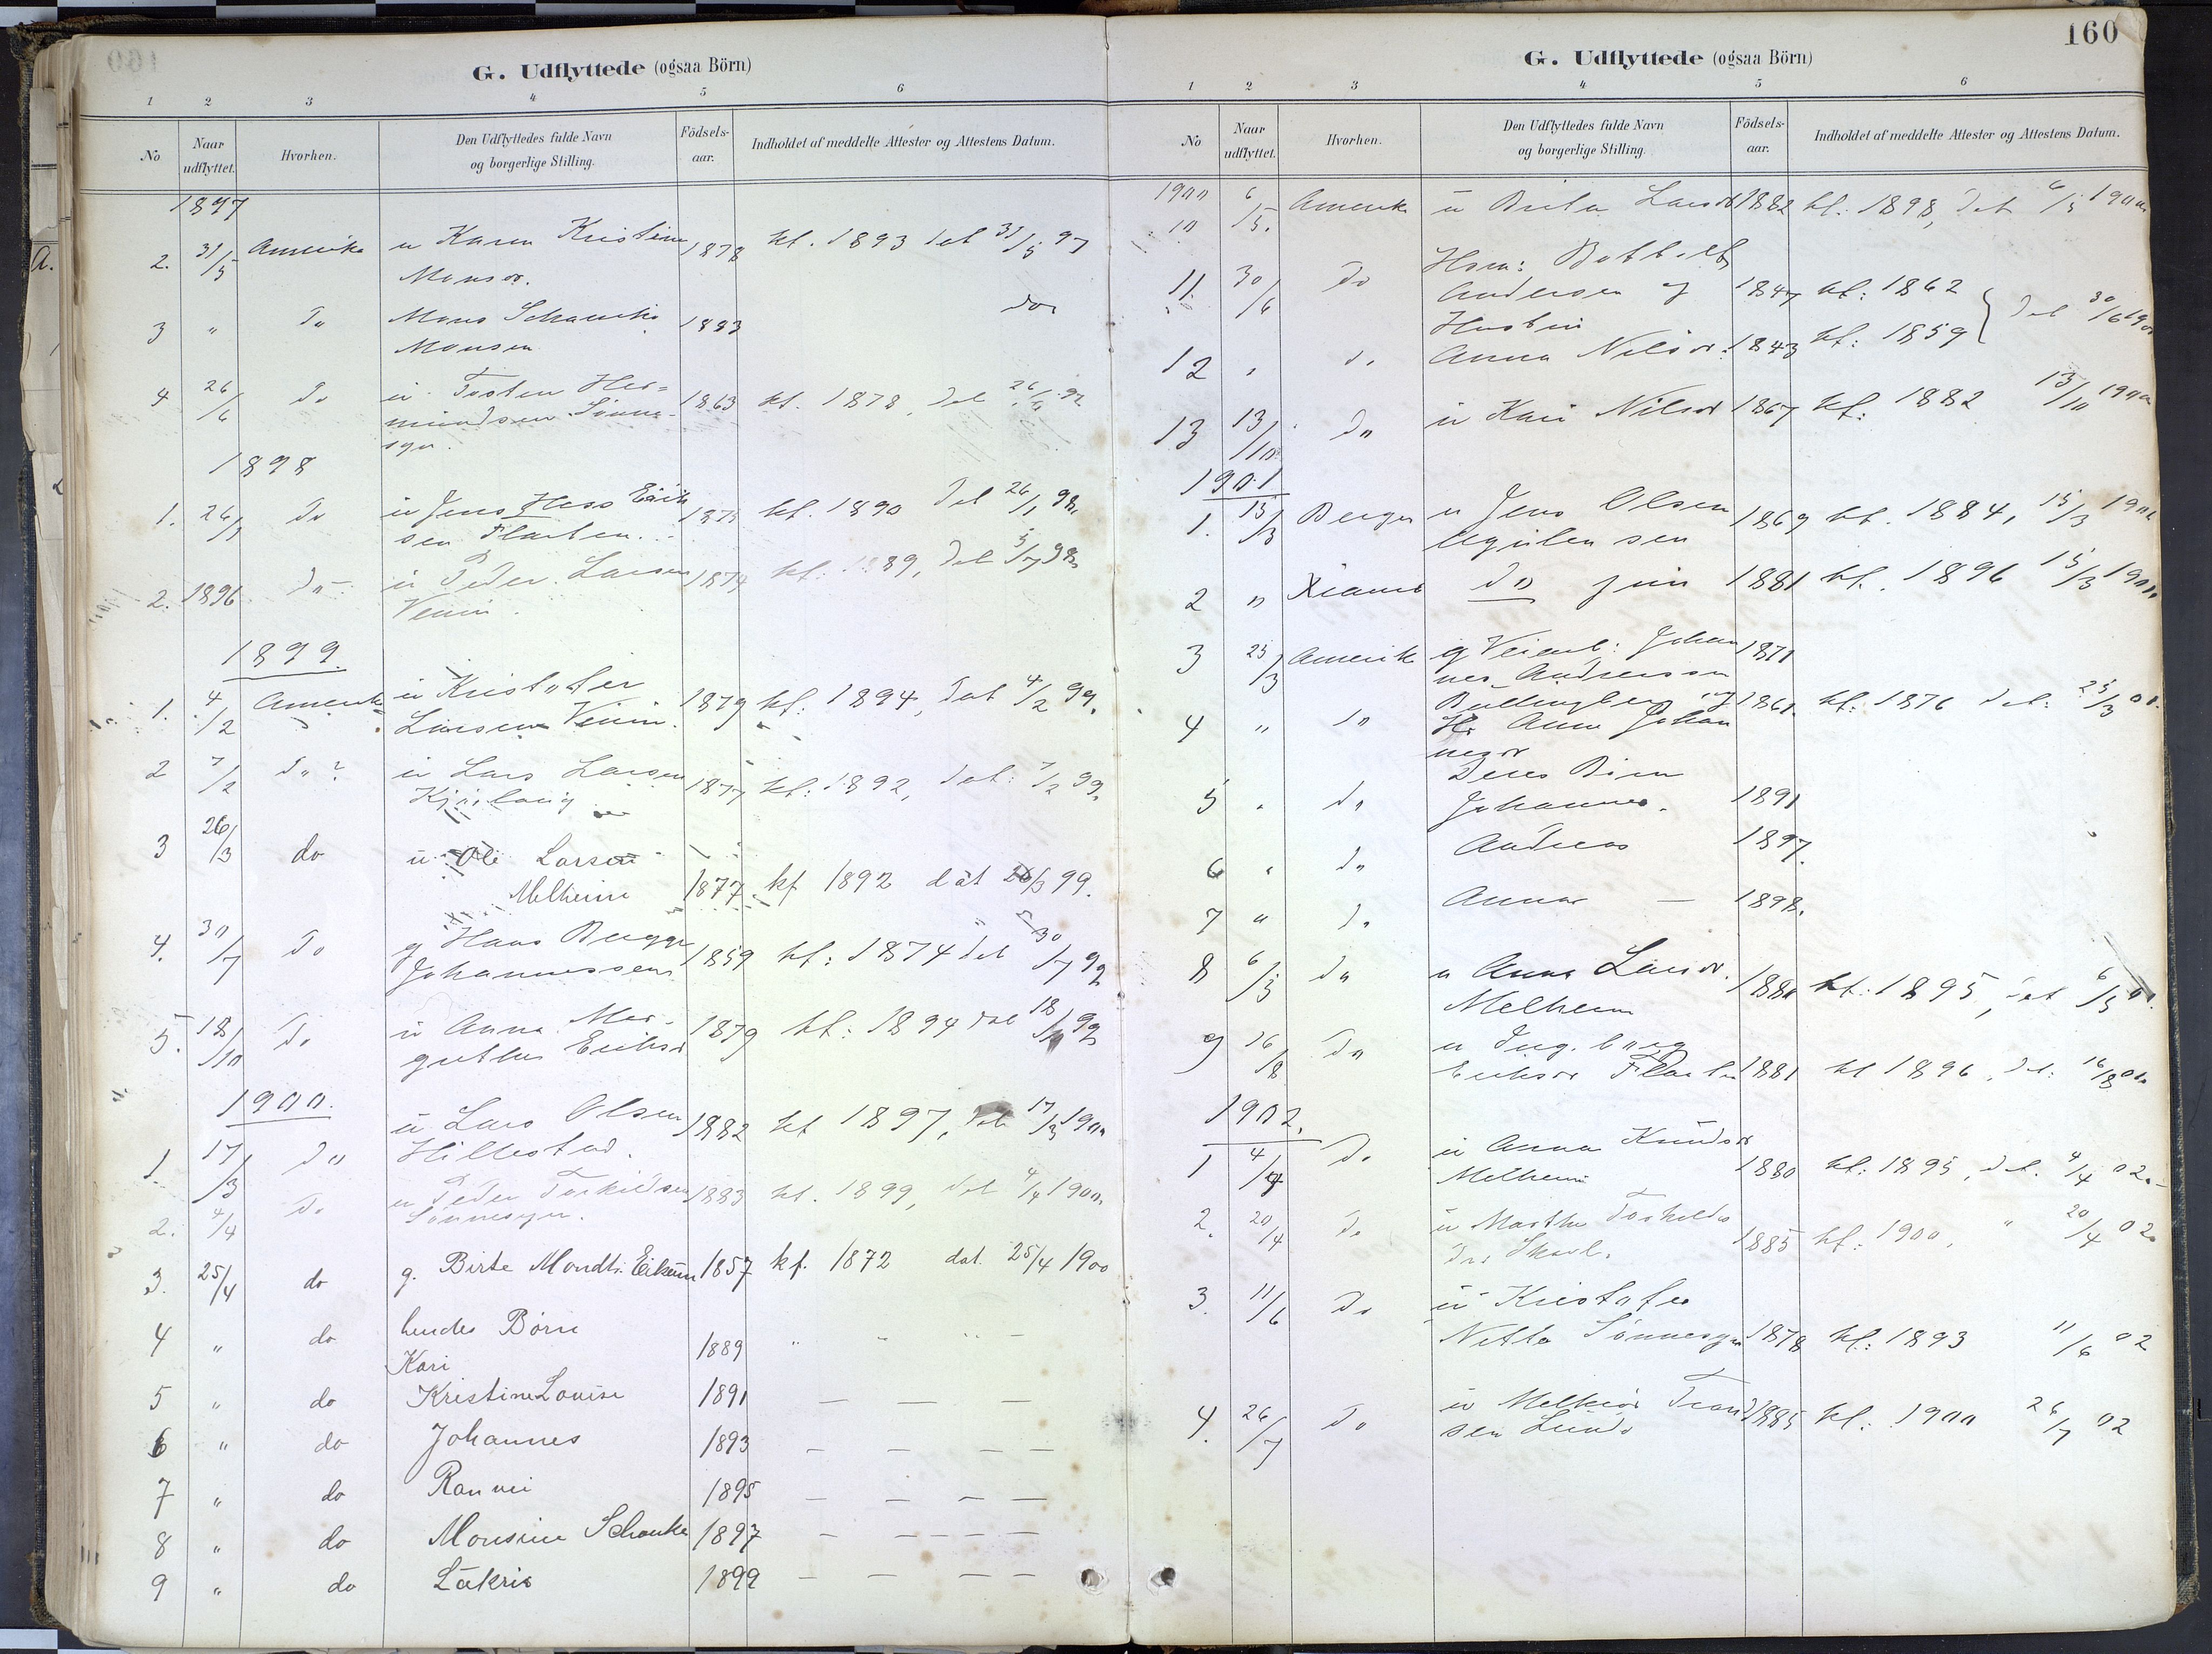 160
G. Udflyttede (ogsaa Börn)
1 2 3 4 5 6
No
Naar udflyttet.
Hvorhen.
Den Udflyttedes fulde Navn og borgerlige Stilling.
Födsels-aar.
Indholdet af meddelte Attester og Attestens Datum.
1897
2. 31/5 Amerika u Karen Kristine 1878 kf. 1893 dat 31/5 97
Monsdr.
3 " Do Mons Schancke 1883 do
Monsen
4 26/6 Do u Tosten Her= 1863 kf. 1878, dat 26/6 97
mundsen Sønne-
syn.
1898
1. 26/1 Do u Jens Hess Erik 1875 kf. 1890 dat 26/1 98
sen Flaten.
2. 1896 Do u Peder Larsen 1874 kf: 1889, dat 5/7 98
Venin
1899.
1. 4/2 Amerika u Kristofer 1879 kf. 1894, dat 4/2 99.
Larsen Venin.
2 7/2 Do ? u Lars Larsen 1877 kf: 1892, dat: 7/2 99
3 26/3 do u Ole Larsen
Melheim 1877 kf 1892 dat 26/3 99.
4. 30/7 Do g Hans Bugge 1859 kf: 1874 dat 30/7 99
Johannessen
5. 18/10 Do u Anna Mar- 1879 kf: 1894 dat 18/10 99
grethe Eriksd
1900.
1. 17/3 Do u Lars Olsen 1882 kf 1897, dat 17/3 1900
Hillestad.
2. 4/4 Do u Peder Torkildsen 1883 kf. 1899, dat 4/4 1900
Sønnesyn.
3. 25/4 do g. Birte Mondtr. Eikum 1857 kf. 1872 dat. 25/4 1900
4 " do hendes Børn
Kari 1889 " " " –
5 " do Kristine Louise 1891 — — — —
6 " do Johannes 1893 — — — —
7 " do Rannei 1895 — — — —
8 " do Monsine Schanke 1897 — — — —
9 " do Lakris 1899 — — — —
160
G. Udflyttede (ogsaa Börn)
1 2 3 4 5 6
No
Naar udflyttet.
Hvorhen.
Den Udflyttedes fulde Navn og borgerlige Stilling.
Födsels-aar.
Indholdet af meddelte Attester og Attestens Datum.
1900
10 6/5. Amerika u Brita Larsdr 1882 kf: 1898, dat 6/5 1900
11. 30/6 Do Hsm: Botholf
Andersen og 1847 kf: 1862 } dat 30/6 1900
Hustru
12 " Do Anna Nilsdr. 1843 kf: 1859
13 13/10 Do u Kari Nilsdr 1867 kf: 1882 13/10 1900
1901
1. 15/3 Bergen u Jens Olsen 1869 kf. 1884, 15/3 1901
2 " Xiania do 1881 kf. 1896 15/3 1901
3 25/3 Amerika g Veiarb: Johan 1871
nes Andersen
4 " Do Hu Anne Johan 1861. kf: 1876 dat: 25/3 01.
nesdr
Deres Børn
5 " Do Johannes. 1891
6 " Do Andreas 1897.
7 " Do Anna — 1898.
8 6/5 Do u Anna Larsdr. 1880 kf: 1895, dat 6/5 01.
Melheim
9 16/8 Do u Ingeborg
Eriksdr Flaten 1881 kf 1896, dat: 16/8 01
1902.
1 4/4 Do u Anna Knudsdr
Melheim 1880 kf: 1895, dat. 4/4 02.
2. 20/4 Do u Marthe Torkilds
dr. 1885 kf: 1900, " 20/4 02
3. 11/6 Do u Kristofer
Sønnesyn 1878 kf: 1893 11/6 02
4. 26/7 Do u Melkior Trond 1885 kf: 1900 26/7 02
sen Lunde